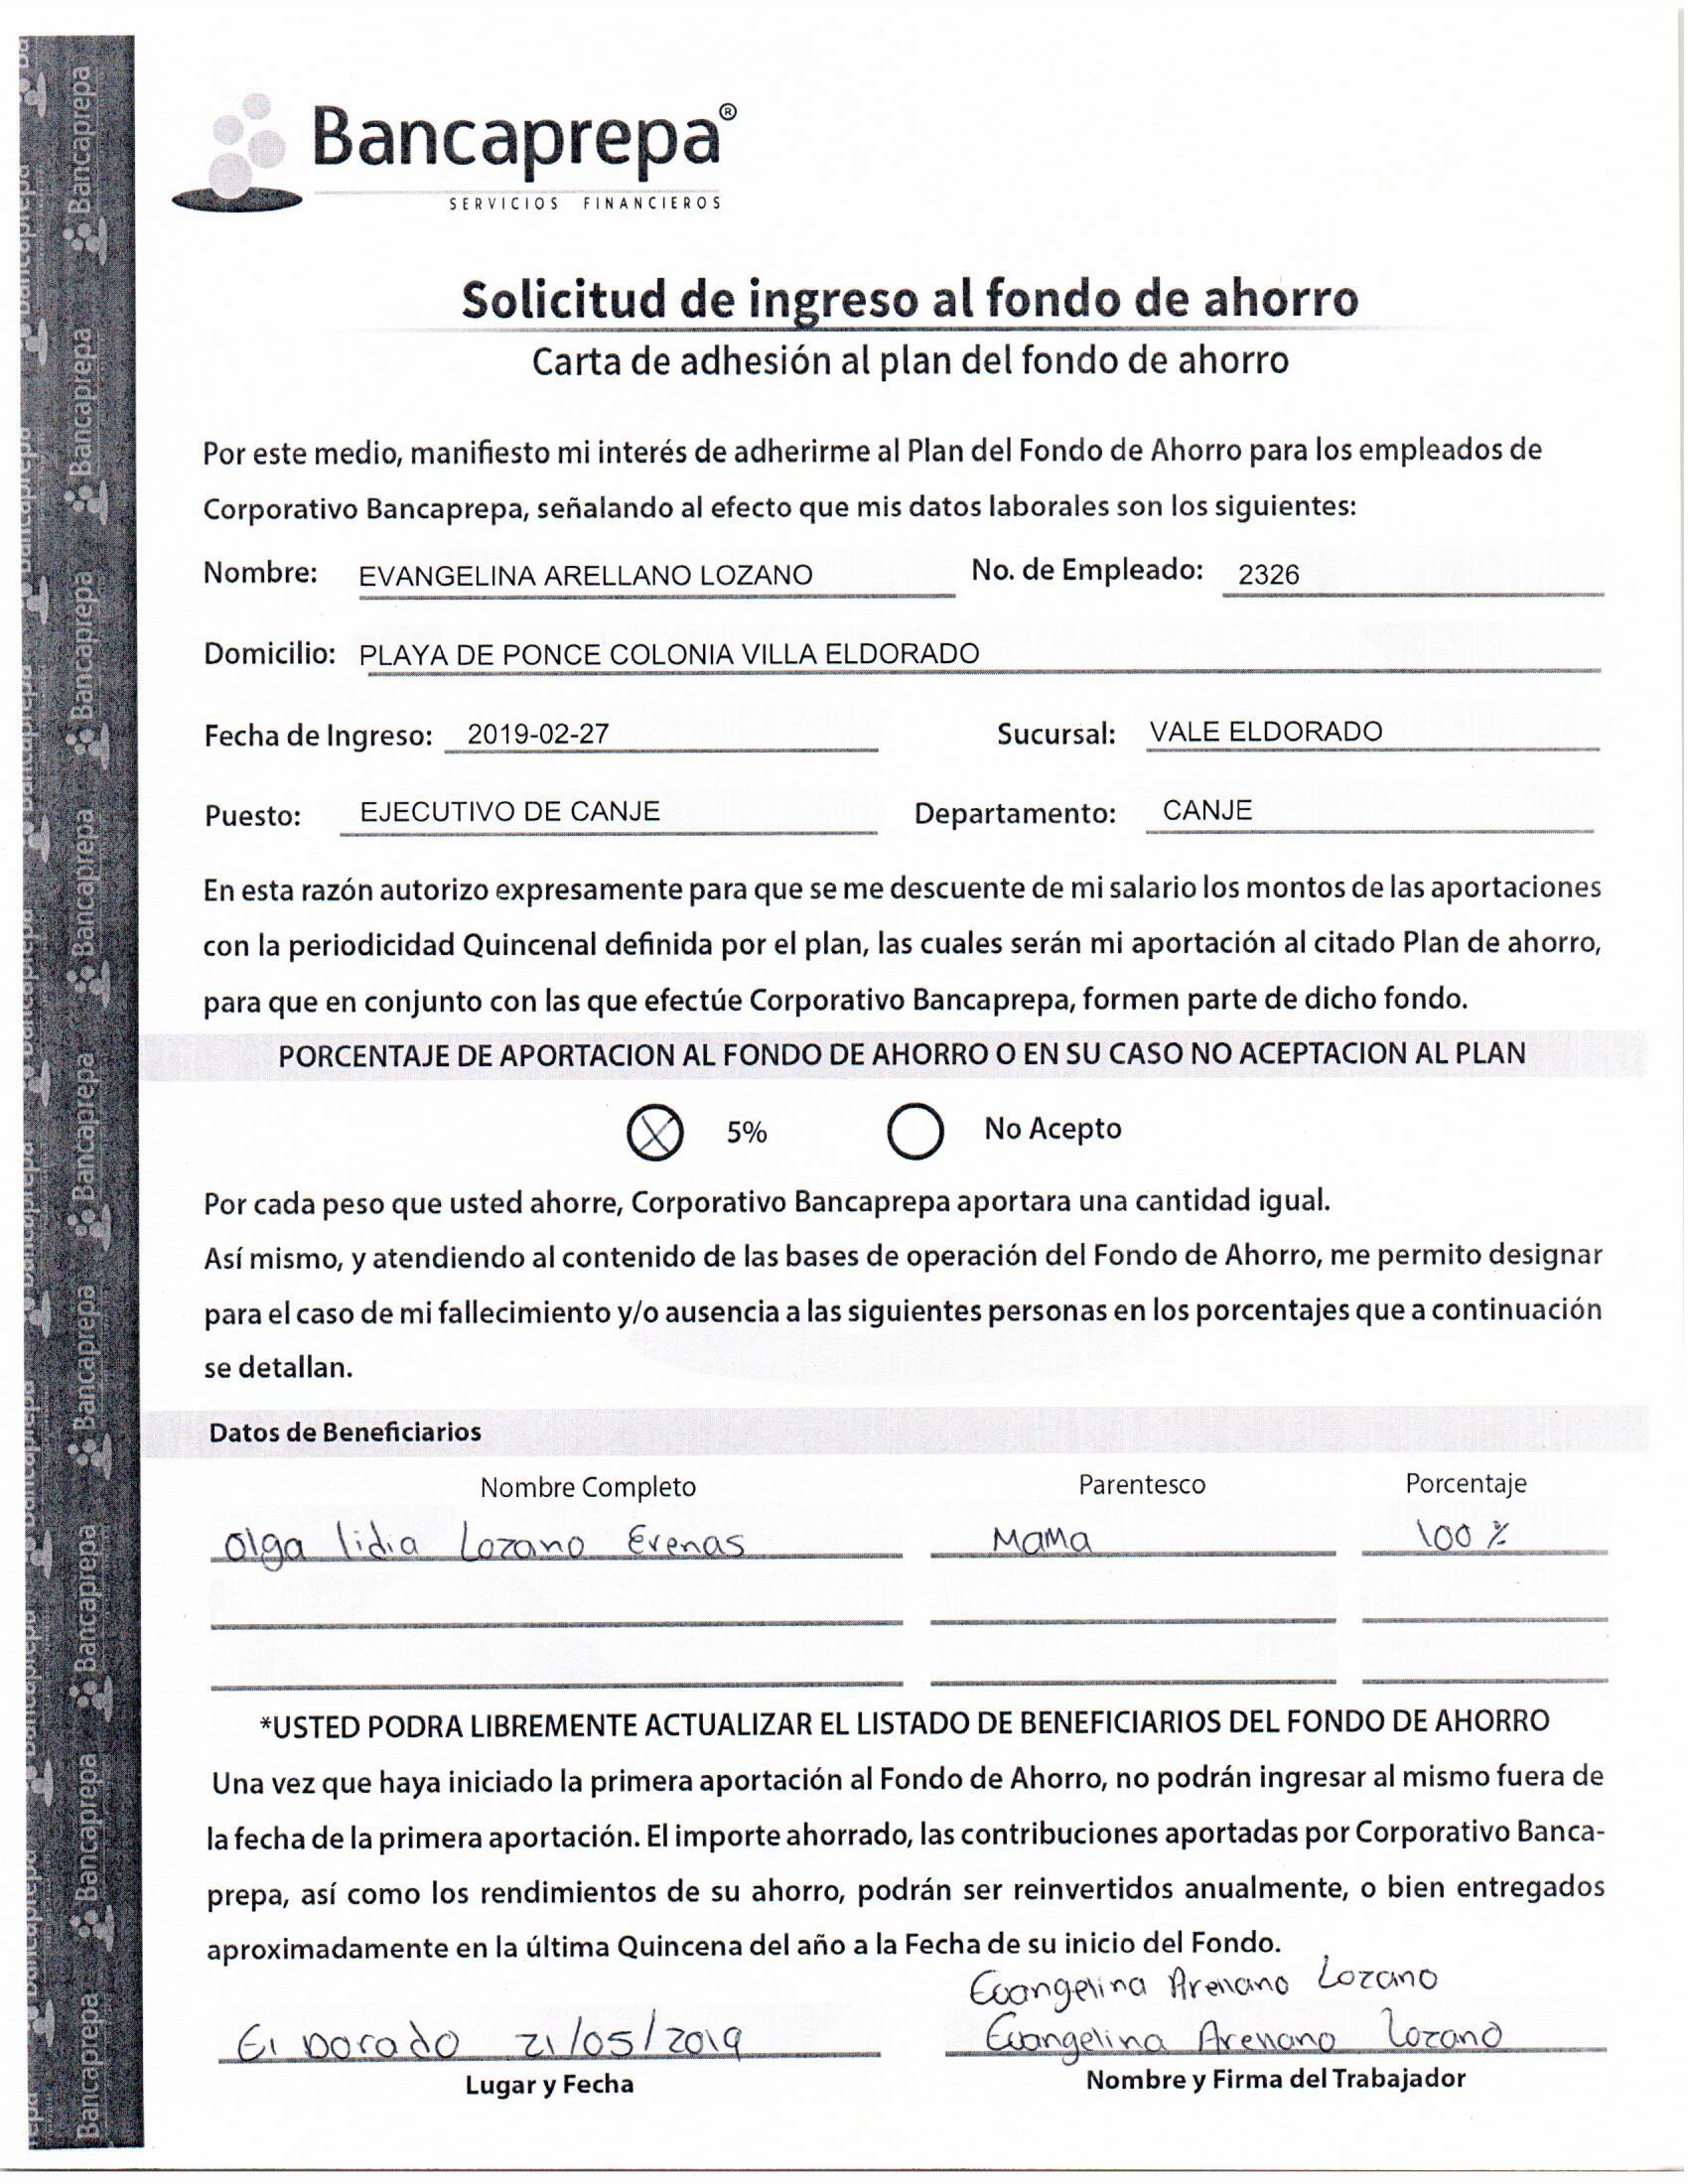 Bancaprepa®
SERVICIOS FINANCIEROS
Solicitud de ingreso al fondo de ahorro
Carta de adhesión al plan del fondo de ahorro
Por este medio, manifiesto mi interés de adherirme al Plan del Fondo de Ahorro para los empleados de
Corporativo Bancaprepa, señalando al efecto que mis datos laborales son los siguientes:
Nombre: EVANGELINA ARELLANO LOZANO No. de Empleado: 2326
Domicilio: PLAYA DE PONCE COLONIA VILLA ELDORADO
Fecha de Ingreso: 2019-02-27 Sucursal: VALE ELDORADO
Puesto: EJECUTIVO DE CANJE Departamento: CANJE
En esta razón autorizo expresamente para que se me descuente de mi salario los montos de las aportaciones
con la periodicidad Quincenal definida por el plan, las cuales serán mi aportación al citado Plan de ahorro,
para que en conjunto con las que efectúe Corporativo Bancaprepa, formen parte de dicho fondo.
PORCENTAJE DE APORTACION AL FONDO DE AHORRO O EN SU CASO NO ACEPTACION AL PLAN
5% No Acepto
Por cada peso que usted ahorre, Corporativo Bancaprepa aportara una cantidad igual.
Así mismo, y atendiendo al contenido de las bases de operación del Fondo de Ahorro, me permito designar
para el caso de mi fallecimiento y/o ausencia a las siguientes personas en los porcentajes que a continuación
se detallan.
Datos de Beneficiarios
Nombre Completo Parentesco Porcentaje
Olga lidia Lozano Erenas Mama 100 %
*USTED PODRA LIBREMENTE ACTUALIZAR EL LISTADO DE BENEFICIARIOS DEL FONDO DE AHORRO
Una vez que haya iniciado la primera aportación al Fondo de Ahorro, no podrán ingresar al mismo fuera de
la fecha de la primera aportación. El importe ahorrado, las contribuciones aportadas por Corporativo Banca-
prepa, así como los rendimientos de su ahorro, podrán ser reinvertidos anualmente, o bien entregados
aproximadamente en la última Quincena del año a la Fecha de su inicio del Fondo.
Evangelina Arellano Lozano
El Dorado 21/05/2019 Evangelina Arellano Lozano
Lugar y Fecha Nombre y Firma del Trabajador